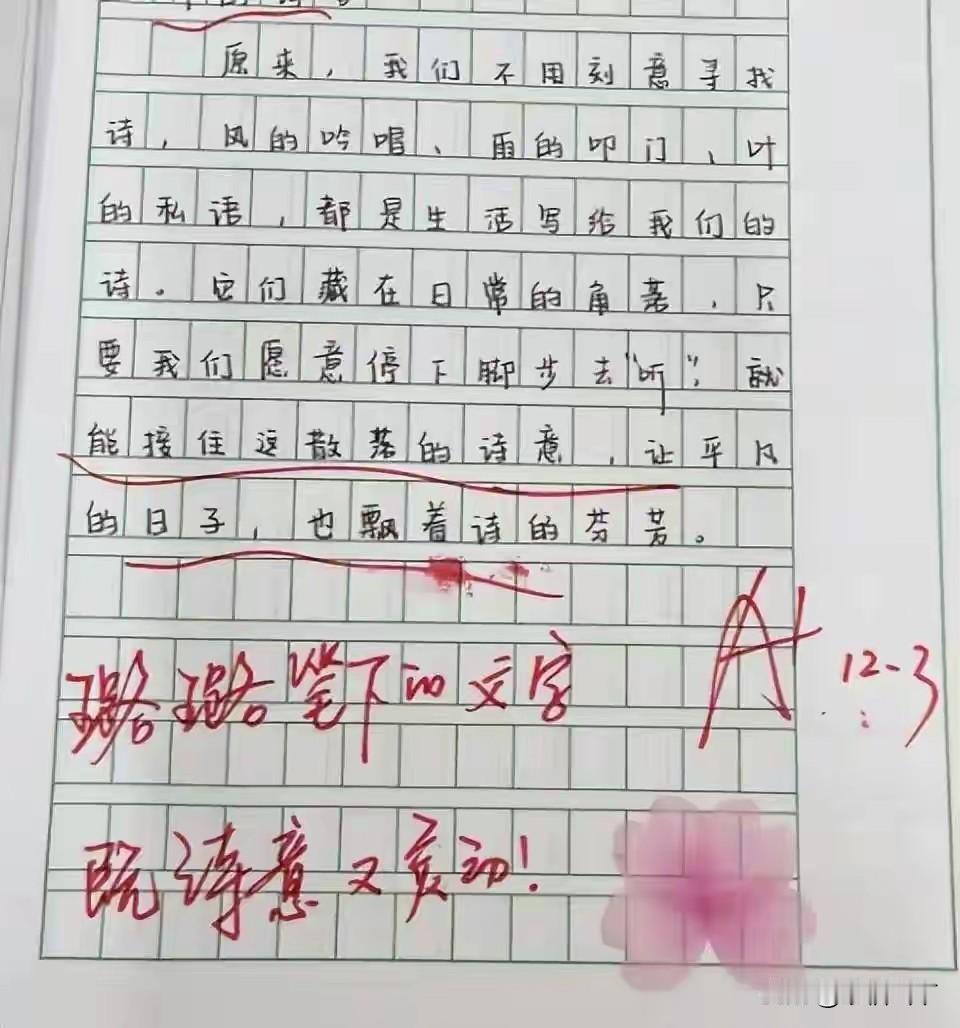 原来，我们不用刻意寻找
诗，风的吟唱、雨的叩门、叶
的私语，都是生活写给我们的
诗。它们藏在日常的角落，只
要我们愿意停下脚步去“听”，就
能接住这散落的诗意，让平凡
的日子，也飘着诗的芬芳。
A+
12-3
璐璐笔下的文字
既诗意又灵动！